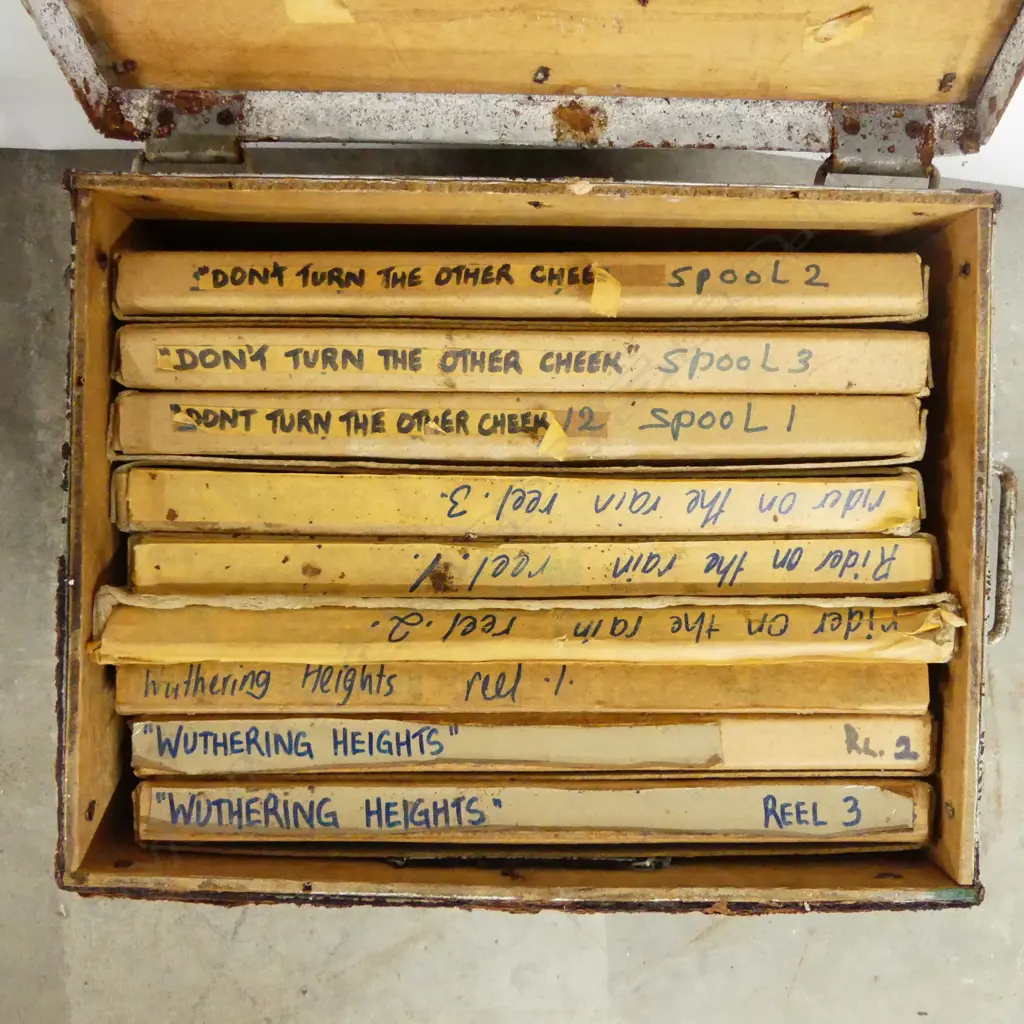 "DON'T TURN THE OTHER CHEE SPOOL 2
"DON'T TURN THE OTHER CHEEK" SPOOL 3
"DONT TURN THE OTHER CHEEK 12 SPOOL 1
rider on the rain reel. 3.
Rider on the rain reel. 1.
rider on the rain reel. 2.
Wuthering Heights reel .1.
"WUTHERING HEIGHTS" RL. 2
"WUTHERING HEIGHTS" REEL 3